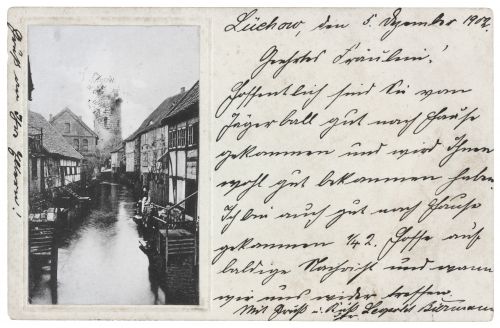 Lüchow, den 5. Dezember 1902.
Geehrtes Fräulein!
Hoffentlich sind Sie vom
Jägerball gut nach Hause
gekommen und wird Ihnen
wohl gut bekommen haben
Ich bin auch gut nach Hause
gekommen 1/42. Hoffe auf
baldige Nachricht und wann
wir uns wider treffen
Mit Gruß u. Kuß
Gruß an Ihre Eltern!